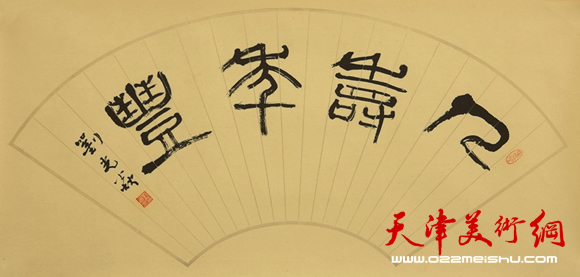 人壽年豐
劉光
天津美術網
www.022meishu.com